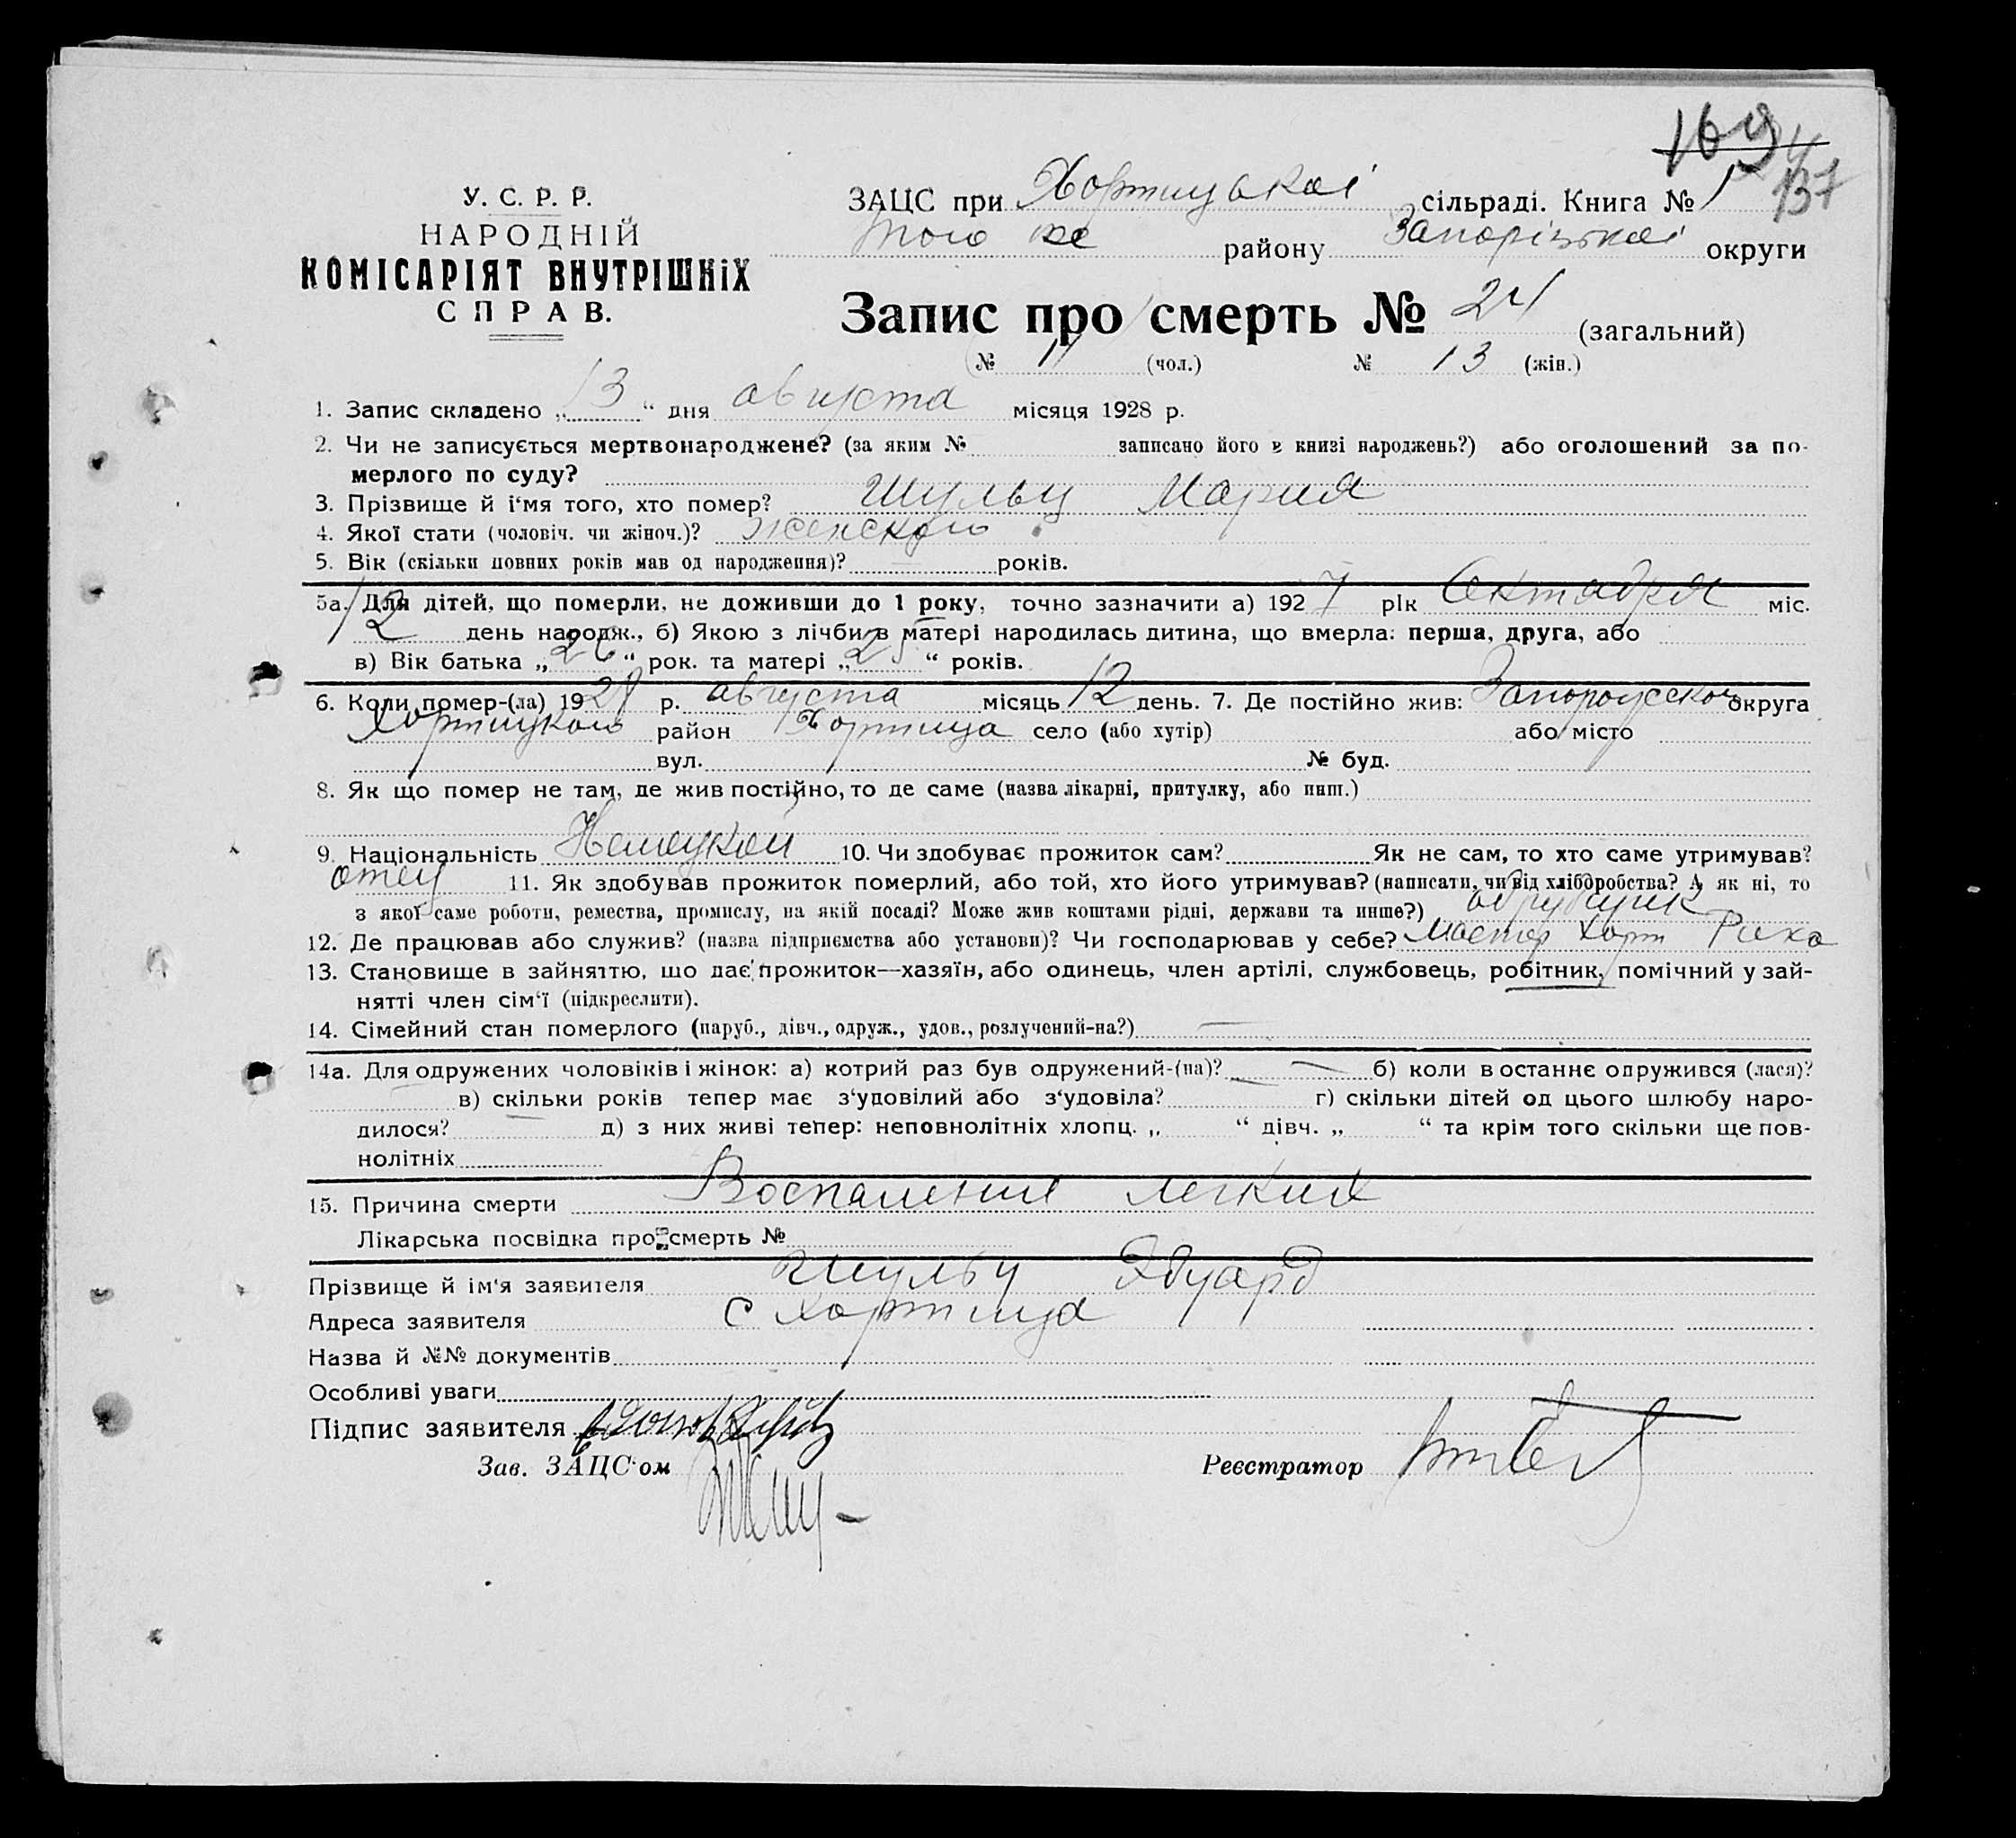 169
137
У. С. Р. Р.
НАРОДНІЙ
КОМІСАРІЯТ ВНУТРІШНІХ
СПРАВ.
ЗАЦС при Хортицькоі сільраді. Книга № 1
того же району Запорізькоі округи
Запис про смерть № 24 (загальний)
(№ 11 (чол.) № 13 (жін.)
1. Запис складено „ 13 “ дня августа місяця 1928 р.
2. Чи не записується мертвонароджене? (за яким № записано його в книзі народжень?) або оголошений за по-
мерлого по суду?
3. Прізвище й і‘мя того, хто помер? Шульц Мария
4. Якої стати (чоловіч. чи жіноч.)? женского
5. Вік (скільки повних років мав од народження)? років.
5а. Для дітей, що померли, не доживши до 1 року, точно зазначити а) 1927 рік Октября міс.
12 день народж., б) Якою з лічби в матері народилась дитина, що вмерла: перша, друга, або
в) Вік батька „ 26 “ рок. та матері „ 25 “ років.
6. Коли помер-(ла) 1928 р. августа місяць 12 день. 7. Де постійно жив: округа
Хортицкого район Хортица село (або хутір) або місто
вул. № буд.
8. Як що помер не там, де жив постійно, то де саме (назва лікарні, притулку, або инш.)
9. Національність Немецкой 10. Чи здобуває прожиток сам? Як не сам, то хто саме утримував?
отец 11. Як здобував прожиток померлий, або той, хто його утримував? (написати, чи від хліборобства? А як ні, то
з якої саме роботи, ремества, промислу, на якій посаді? Може жив коштами рідні, держави та инше?) обрубщик
12. Де працював або служив? (назва підприємства або установи)? Чи господарював у себе? Хорт
13. Становище в зайняттю, що дає прожиток—хазяїн, або одинець, член артілі, службовець, робітник, помічний у зай-
нятті член сім‘ї (підкреслити).
14. Сімейний стан померлого (паруб., дівч., одруж., удов., розлучений-на?)
14а. Для одружених чоловіків і жінок: а) котрий раз був одружений-(на)? б) коли востаннє одружився (лася)?
в) скільки років тепер має з‘удовілий або з‘удовіла? г) скільки дітей од цього шлюбу наро-
дилося? д) з них живі тепер: неповнолітніх хлопц. „ “ дівч. „ “ та крім того скільки ще пов-
нолітніх
15. Причина смерти Воспаления легких
Лікарська посвідка про смерть №
Прізвище й ім‘я заявителя Шульц Эдуард
Адреса заявителя с Хортица
Назва й №№ документів
Особливі уваги
Підпис заявителя
Зав. ЗАЦС‘ом Реєстратор